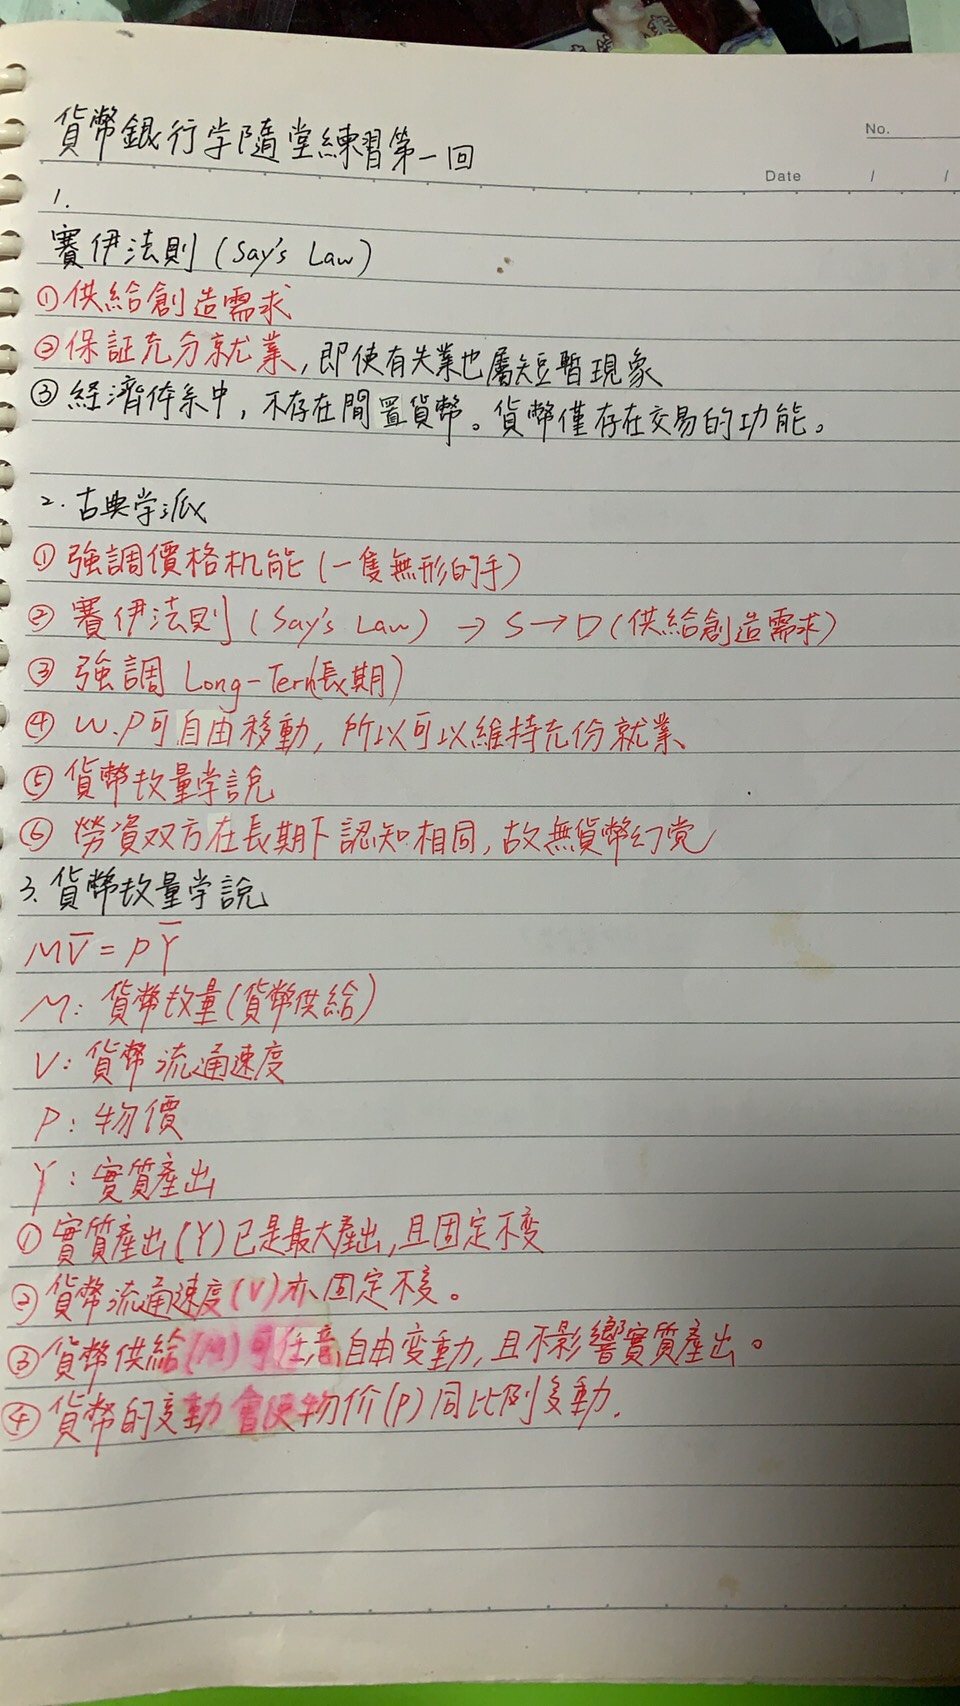 No.
Date / /
貨幣銀行学隨堂練習第一回
1.
賽伊法則 (Say's Law)
①供給創造需求
②保証充分就業,即使有失業也屬短暫現象
③経濟体系中,不存在閒置貨幣。貨幣僅存在交易的功能。
2. 古典学派
①強調價格机能(一隻無形的手)
②賽伊法則(Say's Law) → S→D(供給創造需求)
③強調 Long-Term(長期)
④W.P可自由移動,所以可以維持充份就業
⑤貨幣数量学說
⑥勞資双方在長期下認知相同,故無貨幣幻覚
3. 貨幣数量学說
MV̅=PY̅
M:貨幣数量(貨幣供給)
V:貨幣流通速度
P:物價
Y:實質產出
①實質產出(Y)已是最大產出,且固定不変
②貨幣流通速度(V)亦固定不変。
③貨幣供給(M)可任意自由変動,且不影響實質產出。
④貨幣的変動會使物价(P)同比例変動.